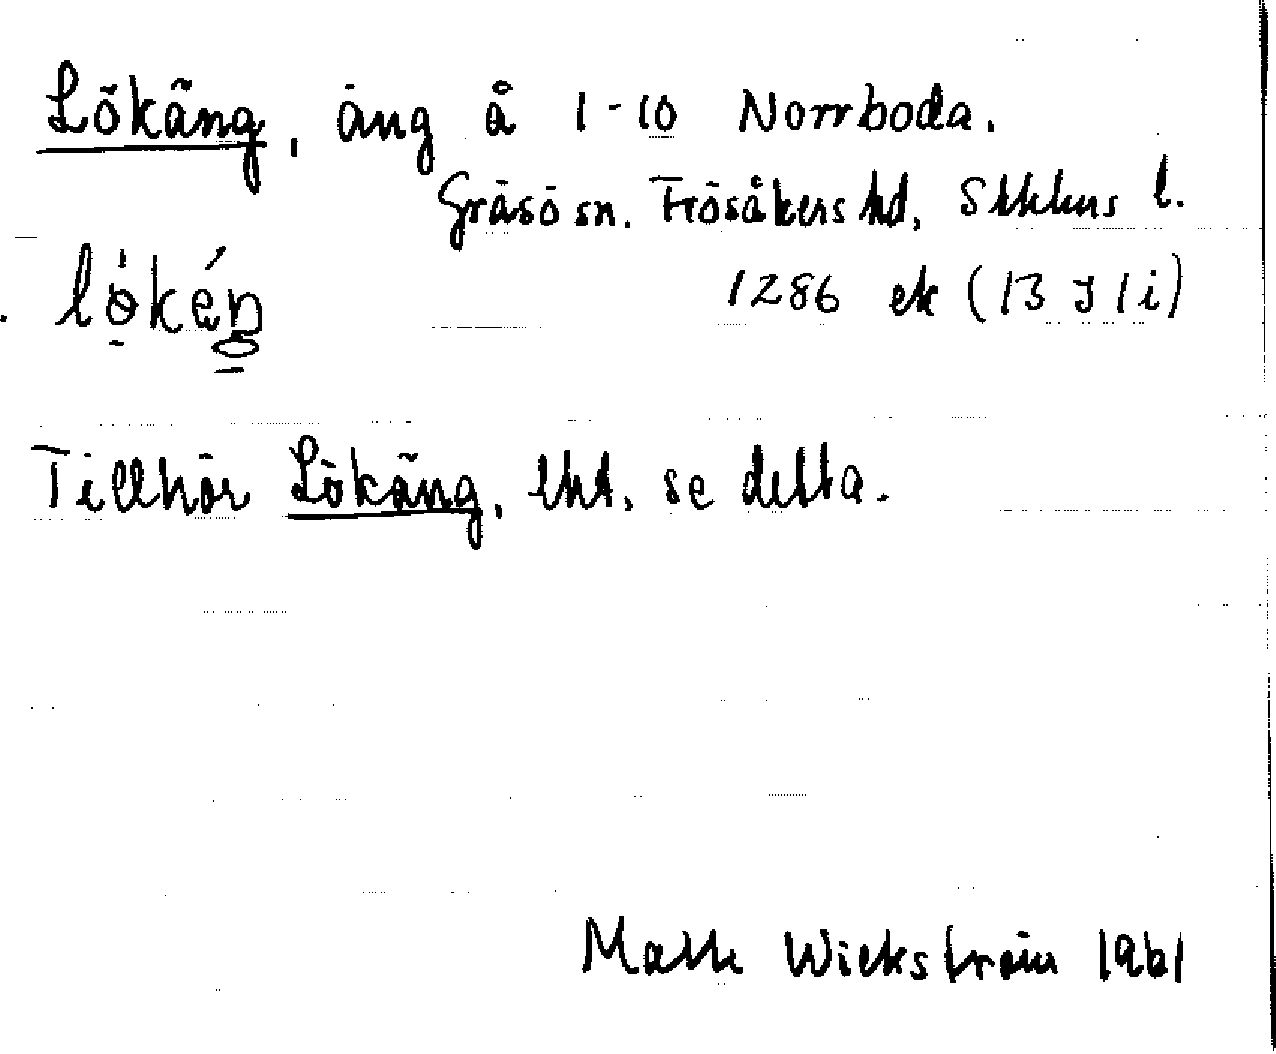 Lökäng, äng å 1-10 Norrboda.
Gräsö sn. Frösåkers hd, Sthlms l.
lökéŋ 1286 ek (13 I 1i)
Tillhör Lökäng, lht, se detta.
Wickström 1961